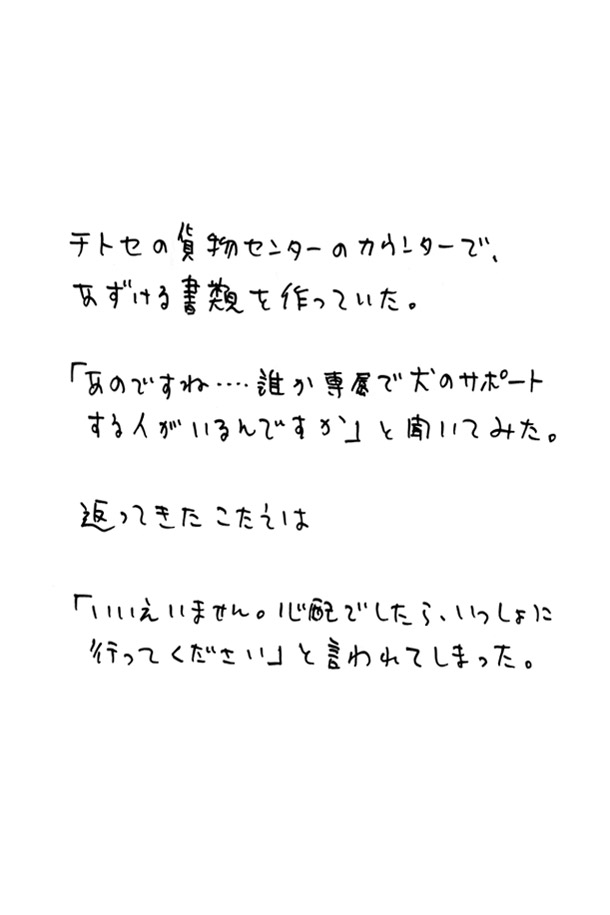 チトセの貨物センターのカウンターで、
あずける書類を作っていた。
「あのですね‥‥誰か専属で犬のサポート
する人がいるんですか」と聞いてみた。
返ってきたこたえは
「いいえいません。心配でしたら、いっしょに
行ってください」と言われてしまった。